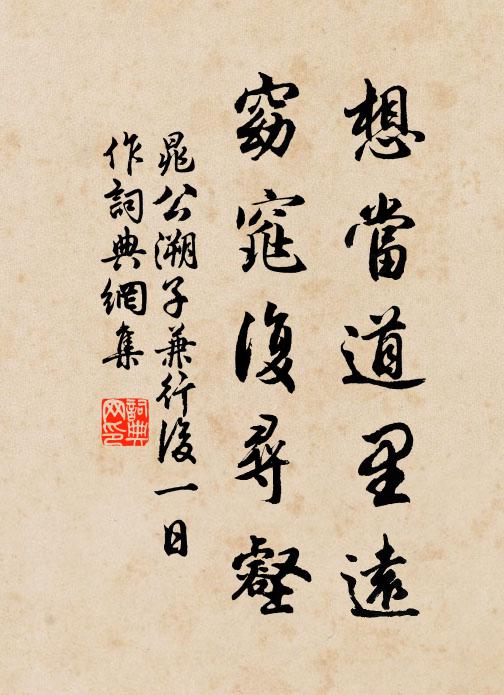 想當道里遠
窈窕復尋壑
晁公溯子兼行後一日
作詞典網集
詞典
网印